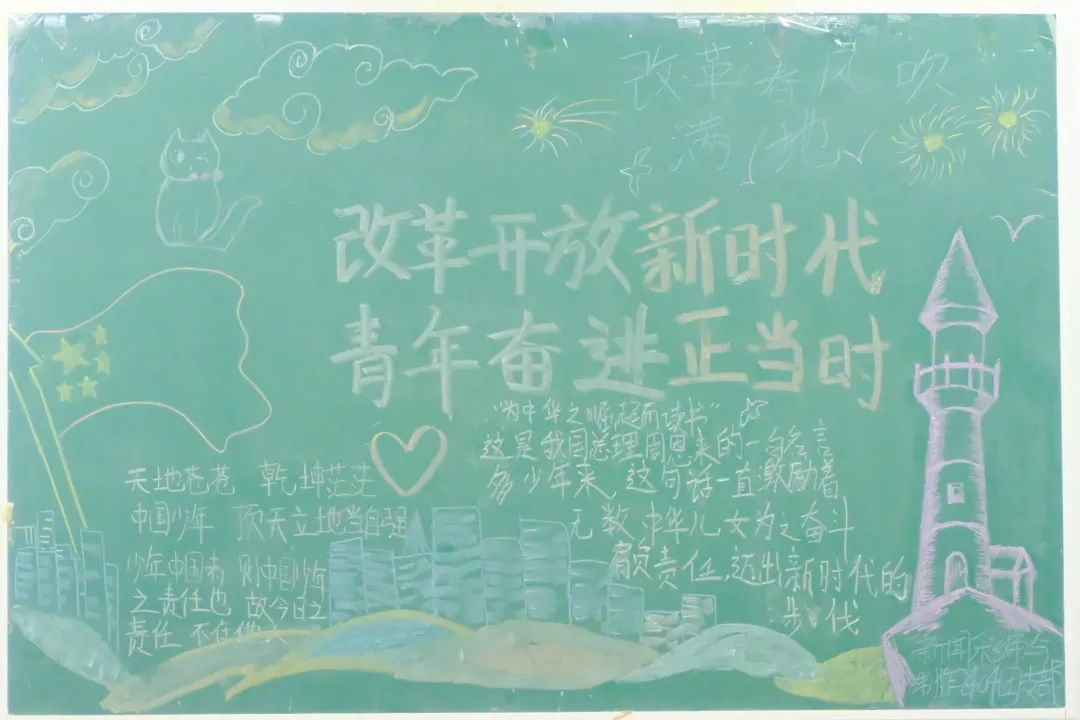 改革春风吹
满地
改革开放新时代
青年奋进正当时
"为中华之崛起而读书"
这是我国总理周恩来的一句名言
多少年来,这句话一直激励着
无数中华儿女为之奋斗
肩负责任,迈出新时代的
步伐
天地苍苍 乾坤茫茫
中国少年 顶天立地当自强
少年中国者 则中国少年
之责任也 故今日之
责任 不在他人
新闻采编与
制作 团支部